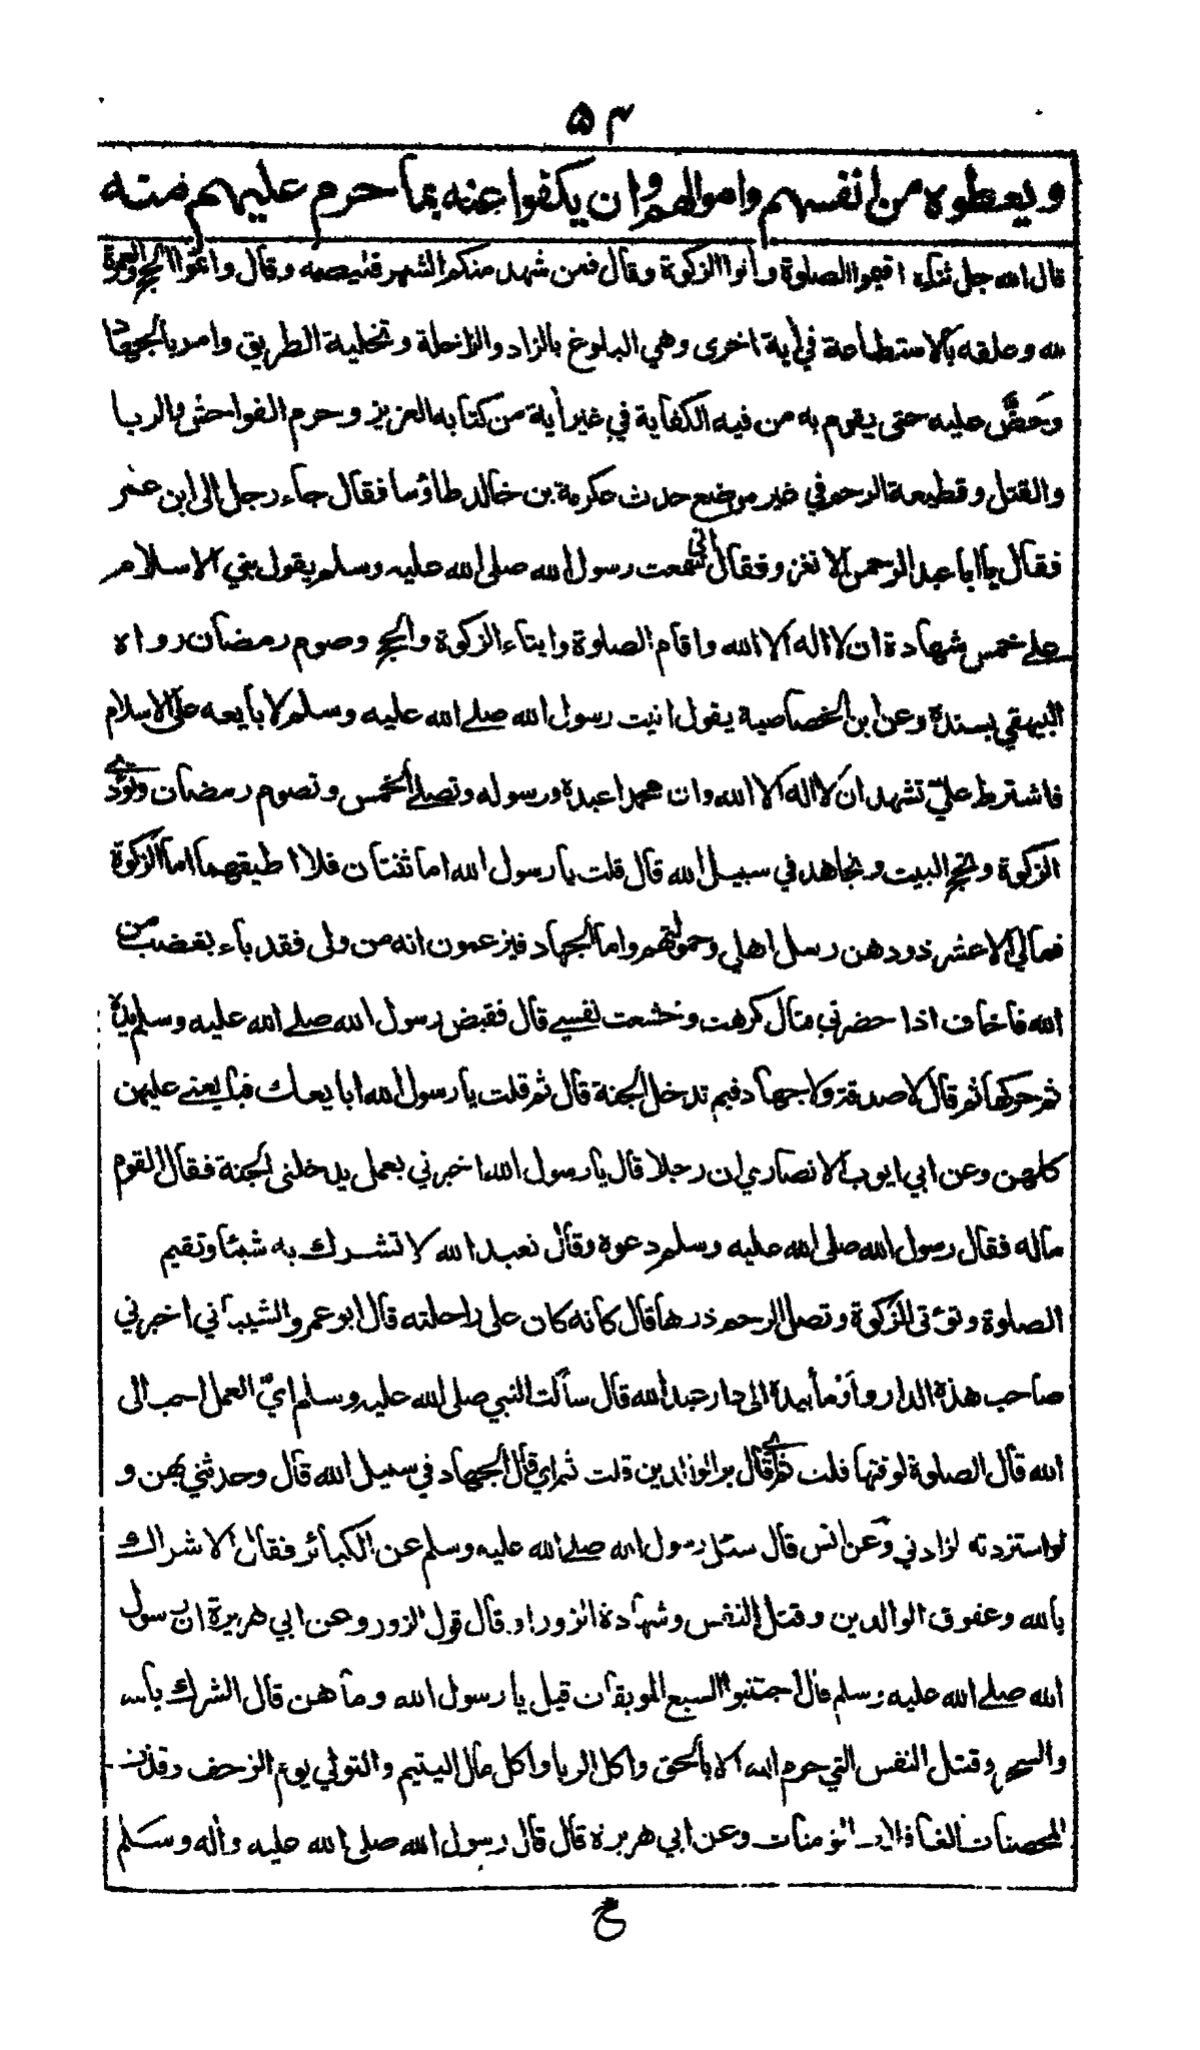 ۵۴
ويعطوه من انفسهم واموالهم وان يكفوا عنه بما حرم عليهم منه
قال الله جل ثناءه اقيموا الصلوة وأتوا الزكوة وقال فمن شهد منكم الشهر فليصمه وقال واتموا الحج والعمرة
لله وعلقه بالاستطاعة في أية اخرى وهي البلوغ بالزاد والراحلة وتخلية الطريق وامر بالجهاد
وحَضَّ عليه حتى يقوم به من فيه الكفاية في غير أية من كتابه العزيز وحرم الفواحش والربا
والقتل وقطيعة الرحم في غير موضع حدث عكرمة بن خالد طاؤسا فقال جاء رجل الى ابن عمر
فقال يا ابا عبد الرحمن الا تغزو فقال اني سمعت رسول الله صلى الله عليه وسلم يقول بني الاسلام
على خمس شهادة ان لا اله الا الله واقام الصلوة وايتاء الزكوة والحج وصوم رمضان رواه
البيهقي بسنده وعن ابن الخصاصية يقول اتيت رسول الله صلے الله عليه وسلم لا بايعه على الاسلام
فاشترط عليّ تشهد ان لا اله الا الله وان محمدا عبده ورسوله وتصلے الخمس وتصوم رمضان وتؤدي
الزكوة وتحج البيت وتجاهد في سبيل الله قال قلت يا رسول الله اما ثنتان فلا اطيقهما اما الزكوة
فمالي الا عشر ذود هن رسل اهلي وحمولتهم واما الجهاد فيزعمون انه من ولى فقد باء بغضب من
الله فاخاف اذا حضرني قتال كرهت وخشعت نفسي قال فقبض رسول الله صلے الله عليه وسلم يده
ثم حركها ثم قال لا صدقة ولا جهاد فبم تدخل الجنة قال ثم قلت يا رسول الله ابايعك فبايعني عليهن
كلهن وعن ابي ايوب الانصاري ان رجلا قال يا رسول الله اخبرني بعمل يدخلني الجنة فقال القوم
ماله فقال رسول الله صلى الله عليه وسلم دعوه وقال تعبد الله لا تشرك به شيئا وتقيم
الصلوة وتؤتى الزكوة وتصل الرحم ذرها قال كانه كان على راحلته قال ابو عمرو الشيباني اخبرني
صاحب هذه الدار واومأ بيده الى دار عبد الله قال سألت النبي صلى الله عليه وسلم ايّ العمل احب الى
الله قال الصلوة لوقتها قلت ثم اي قال بر الوالدين قلت ثم اي قال الجهاد في سبيل الله قال وحدثني بهن و
لو استزدته لزادني وعن انس قال سئل رسول الله صلے الله عليه وسلم عن الكبائر فقال الاشراك
بالله وعقوق الوالدين وقتل النفس وشهادة الزور او قال قول الزور وعن ابي هريرة ان رسول
الله صلے الله عليه وسلم قال اجتنبوا السبع الموبقات قيل يا رسول الله وما هن قال الشرك بالله
والسحر وقتل النفس التي حرم الله الا بالحق واكل الربا واكل مال اليتيم والتولي يوم الزحف وقذف
المحصنات الغافلات المؤمنات وعن ابي هريرة قال قال رسول الله صلى الله عليه وأله وسلم